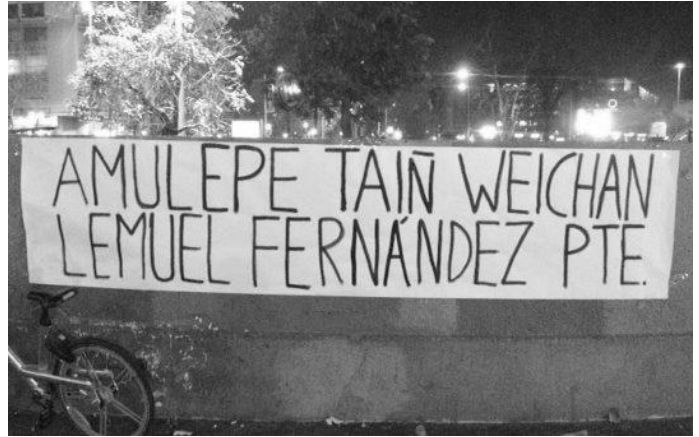 AMULEPE TAIÑ WEICHAN
LEMUEL FERNÁNDEZ PTE.